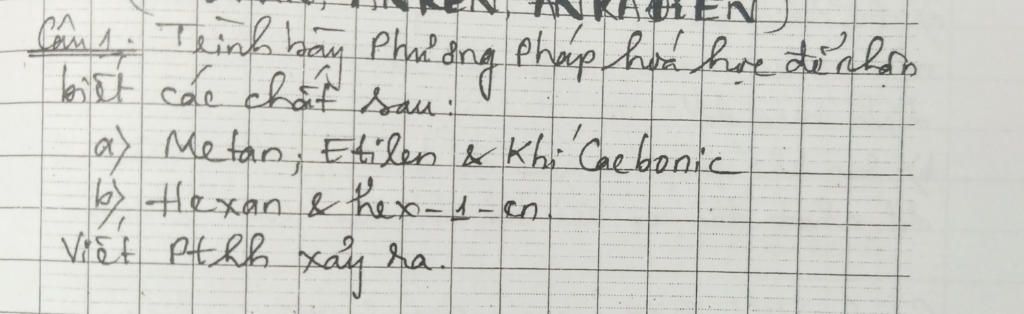 ANKEN, ANKAĐIEN)
Câu 1. Trình bày phương pháp hoá học để nhận
biết các chất sau:
a) Metan, Etilen & Khí Cacbonic
b) Hexan & hex-1-en
Viết Pthh xảy ra.